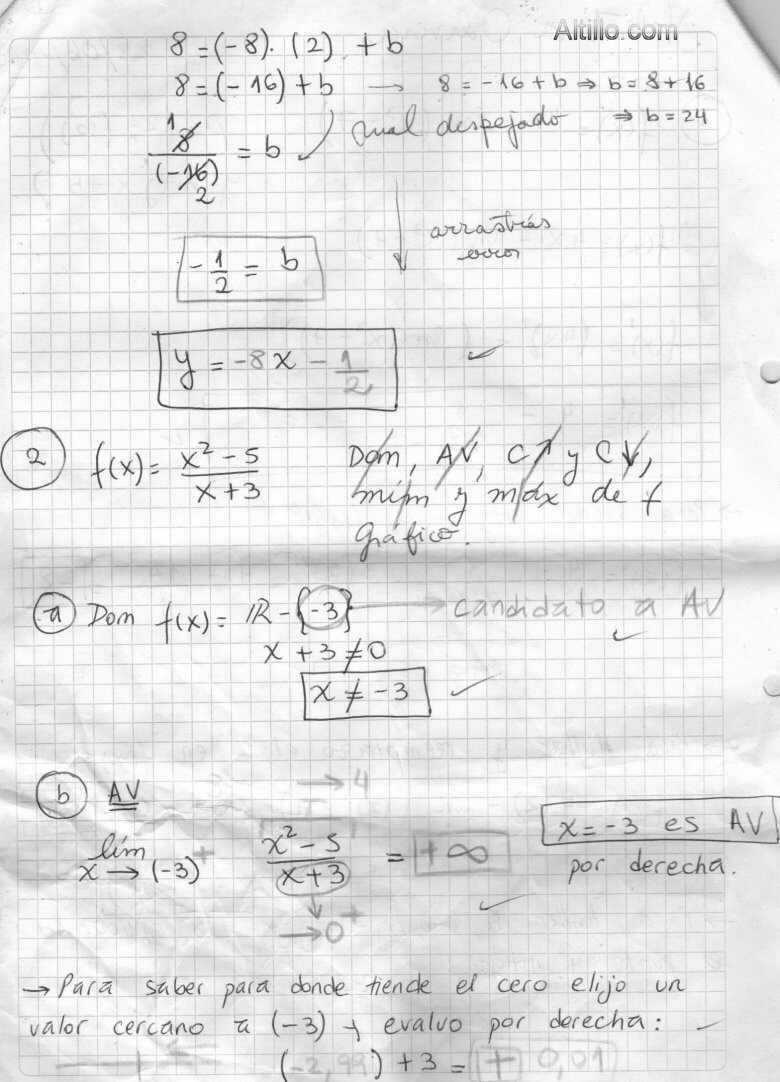 Altillo.com
8 = (-8). (2) + b
8 = (-16) + b → 8 = -16 + b ⇒ b = 8 + 16
⇒ b = 24
1
8/(-16) = b ✓ mal despejado
2
arrastrás
error
-1/2 = b
y = -8x - 1/2 ✓
2 f(x) = x² - 5 / x + 3 Dom, AV, C↑ y C↓,
mín y máx de f
gráfico.
a Dom f(x) = IR - {-3} → candidato a AV
x + 3 ≠ 0 ✓
x ≠ -3 ✓
b AV → 4
lím x → (-3)⁺ x² - 5 / x + 3 = +∞ x = -3 es AV
por derecha.
→ 0⁺ ✓
→ Para saber para donde tiende el cero elijo un
valor cercano a (-3) y evaluo por derecha:
(-2,99) + 3 = + 0,01